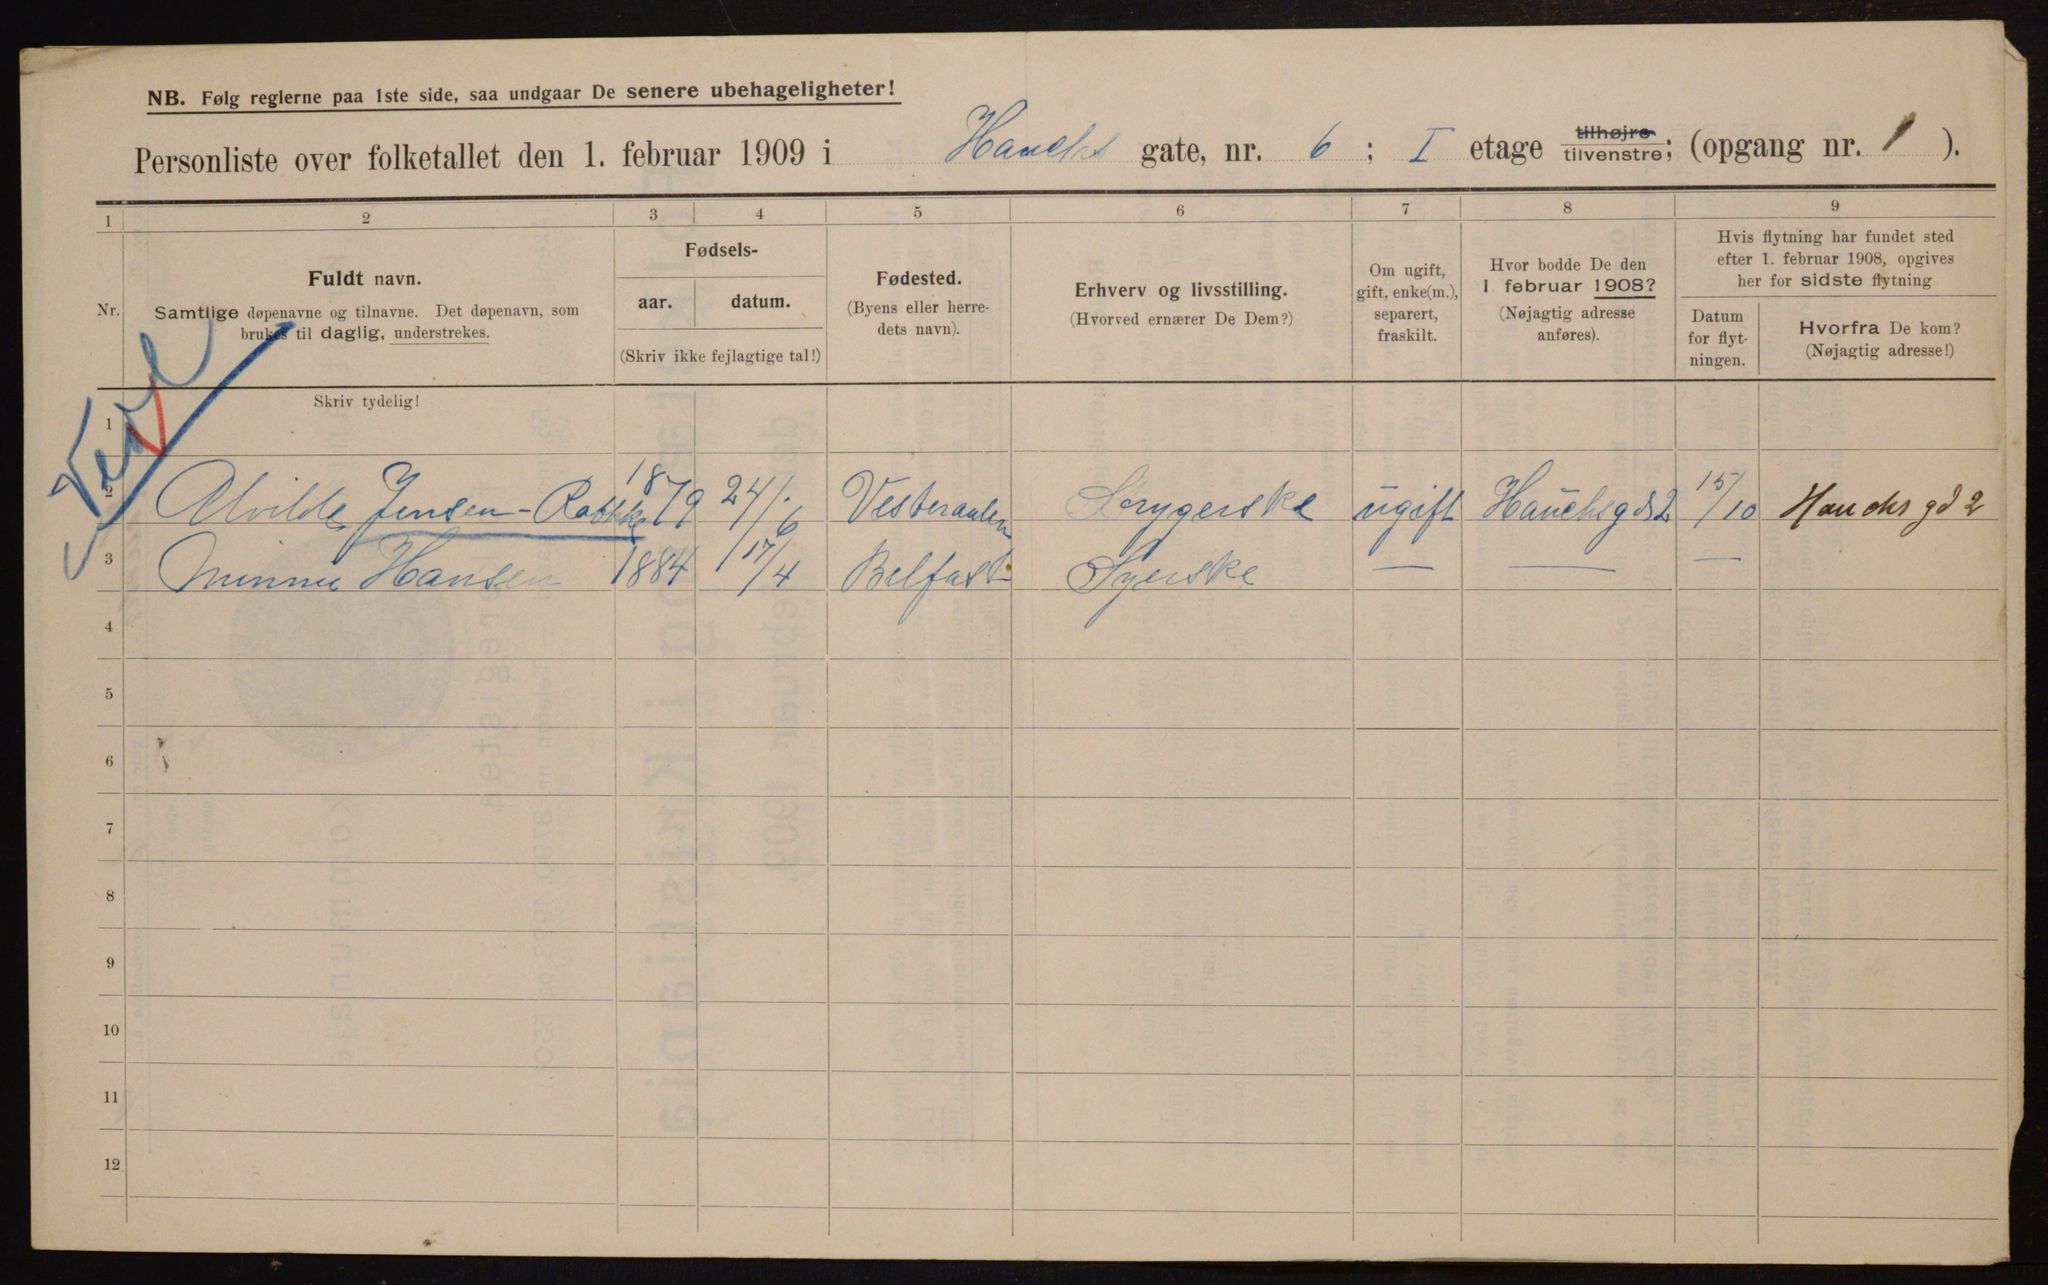 NB. Følg reglerne paa 1ste side, saa undgaar De senere ubehageligheter!
Personliste over folketallet den 1. februar 1909 i Hauchs gate, nr. 6 ; I etage tilhøjre tilvenstre; (opgang nr. 1 ).
1 2 3 4 5 6 7 8 9
Nr.
Fuldt navn.
Samtlige døpenavne og tilnavne. Det døpenavn, som
brukes til daglig, understrekes.
Fødsels-
aar. datum.
(Skriv ikke fejlagtige tal!)
Fødested.
(Byens eller herre-
dets navn).
Erhverv og livsstilling.
(Hvorved ernærer De Dem?)
Om ugift,
gift, enke(m.),
separert,
fraskilt.
Hvor bodde De den
1. februar 1908?
(Nøjagtig adresse
anføres).
Hvis flytning har fundet sted
efter 1. februar 1908, opgives
her for sidste flytning
Datum
for flyt-
ningen.
Hvorfra De kom?
(Nøjagtig adresse!)
Skriv tydelig!
1
2 Alvilde Jensen- 1879 24/6 Vesteraalen ugift Hauchsgd 2 15/10 Hauchs gd 2
3 Minnie Hansen 1884 17/4 Belfast Syerske — — —
4
5
6
7
8
9
10
11
12